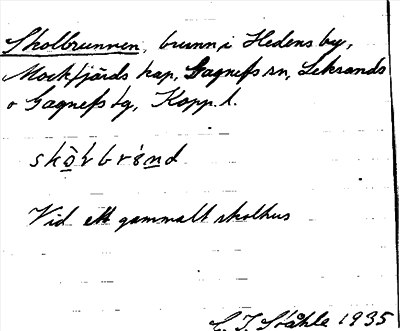 Skolbrunnen, brunn i Hedens by,
Mockfjärds kap, Gagnefs sn, Leksands
o Gagnefs tg, Kopp. l.
Vid ett gammalt skolhus
C. I. Ståhle 1935